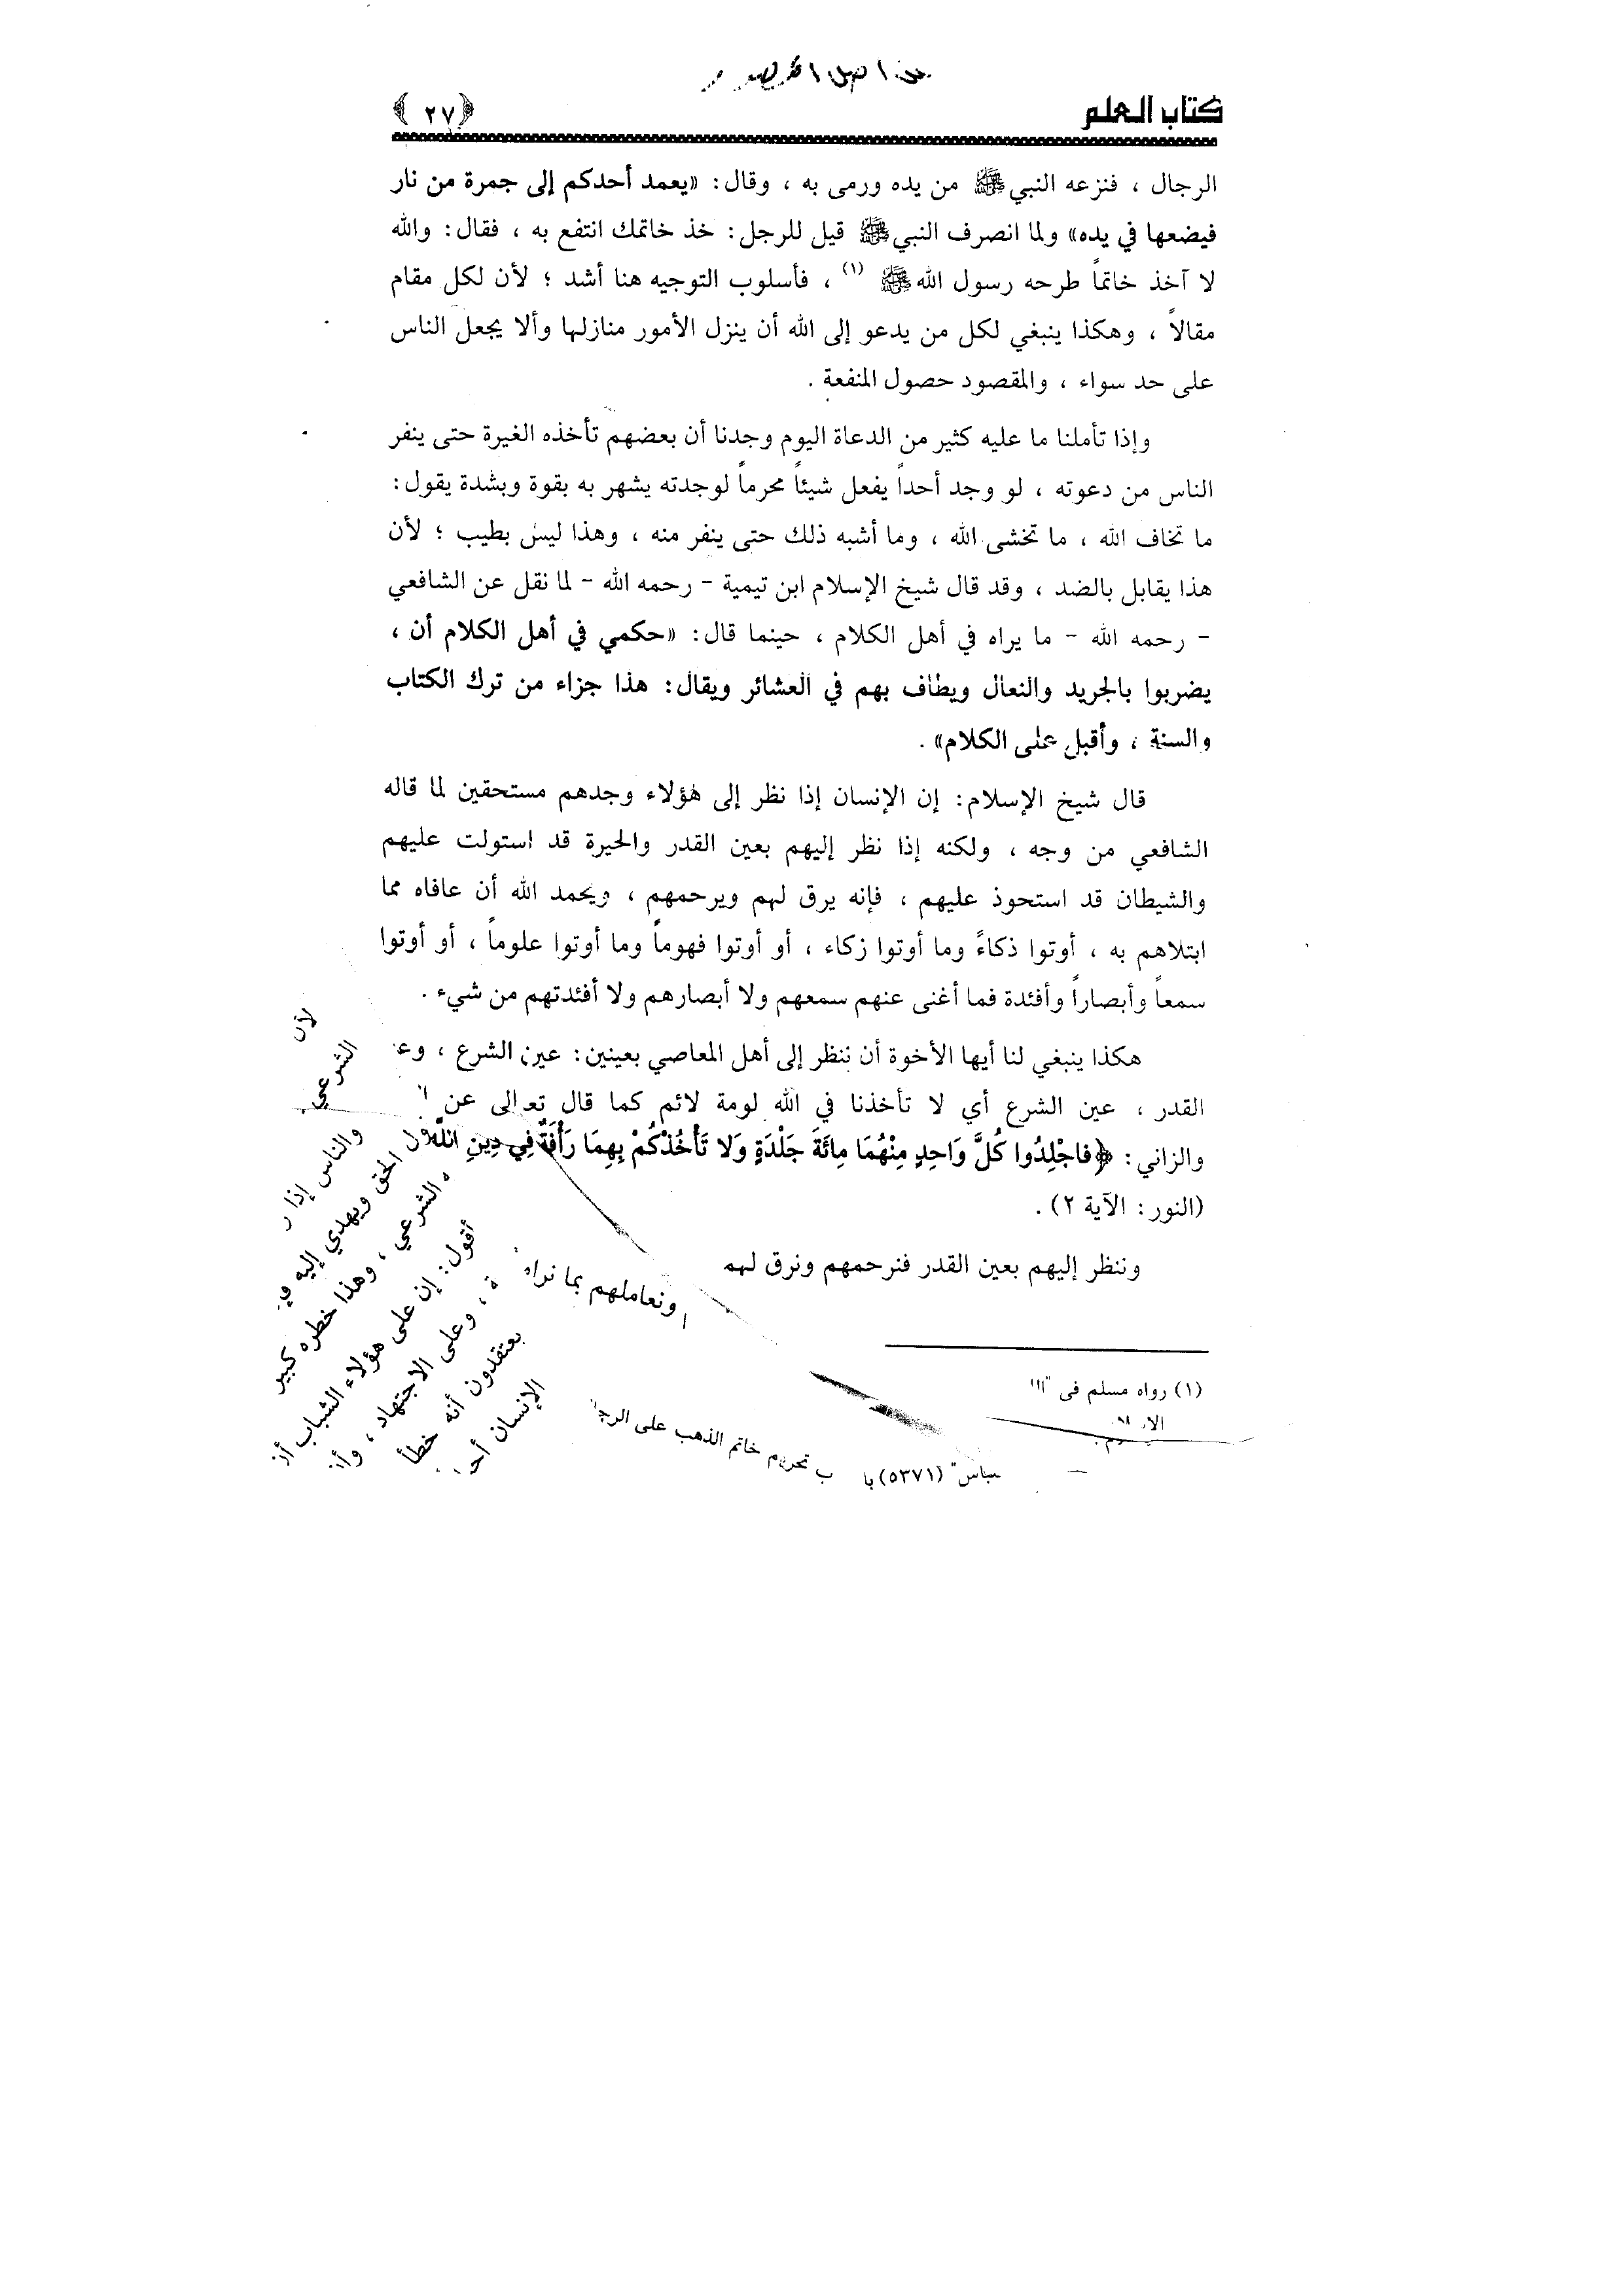 كتاب العلم
﴿٢٧﴾
الرجال ، فنزعه النبي ﷺ من يده ورمى به ، وقال: «يعمد أحدكم إلى جمرة من نار
فيضعها في يده» ولما انصرف النبي ﷺ قيل للرجل: خذ خاتمك انتفع به ، فقال: والله
لا آخذ خاتماً طرحه رسول الله ﷺ (١) ، فأسلوب التوجيه هنا أشد ؛ لأن لكل مقام
مقالاً ، وهكذا ينبغي لكل من يدعو إلى الله أن ينزل الأمور منازلها وألا يجعل الناس
على حد سواء ، والمقصود حصول المنفعة .
وإذا تأملنا ما عليه كثير من الدعاة اليوم وجدنا أن بعضهم تأخذه الغيرة حتى ينفر
الناس من دعوته ، لو وجد أحداً يفعل شيئاً محرماً لوجدته يشهر به بقوة وبشدة يقول:
ما تخاف الله ، ما تخشى الله ، وما أشبه ذلك حتى ينفر منه ، وهذا ليس بطيب ؛ لأن
هذا يقابل بالضد ، وقد قال شيخ الإسلام ابن تيمية - رحمه الله - لما نقل عن الشافعي
- رحمه الله - ما يراه في أهل الكلام ، حينما قال: «حكمي في أهل الكلام أن ،
يضربوا بالجريد والنعال ويطاف بهم في العشائر ويقال: هذا جزاء من ترك الكتاب
والسنة ، وأقبل على الكلام» .
قال شيخ الإسلام: إن الإنسان إذا نظر إلى هؤلاء وجدهم مستحقين لما قاله
الشافعي من وجه ، ولكنه إذا نظر إليهم بعين القدر والحيرة قد استولت عليهم
والشيطان قد استحوذ عليهم ، فإنه يرق لهم ويرحمهم ، ويحمد الله أن عافاه مما
ابتلاهم به ، أوتوا ذكاءً وما أوتوا زكاء ، أو أوتوا فهوماً وما أوتوا علوماً ، أو أوتوا
سمعاً وأبصاراً وأفئدة فما أغنى عنهم سمعهم ولا أبصارهم ولا أفئدتهم من شيء .
هكذا ينبغي لنا أيها الأخوة أن ننظر إلى أهل المعاصي بعينين: عين الشرع ،
القدر ، عين الشرع أي لا تأخذنا في الله لومة لائم كما قال تعالى عن
والزاني: ﴿فاجْلِدُوا كُلَّ وَاحِدٍ مِنْهُمَا مِائَةَ جَلْدَةٍ وَلا تَأْخُذْكُمْ بِهِمَا رَأْفَةٌ فِي دِينِ اللَّه
(النور: الآية ٢) .
وننظر إليهم بعين القدر فنرحمهم ونرق لهم ونعاملهم بما نراه
(١) رواه مسلم في
(٥٣٧١) تحريم خاتم الذهب على
لأن
الشرعي
والناس إذا
الحق ويهدي إليه
الشرعي ، وهذا خطره كبير
أقول: إن على هؤلاء الشباب
، وعلى الاجتهاد ،
يعتقدون أنه خطأ
الإنسان